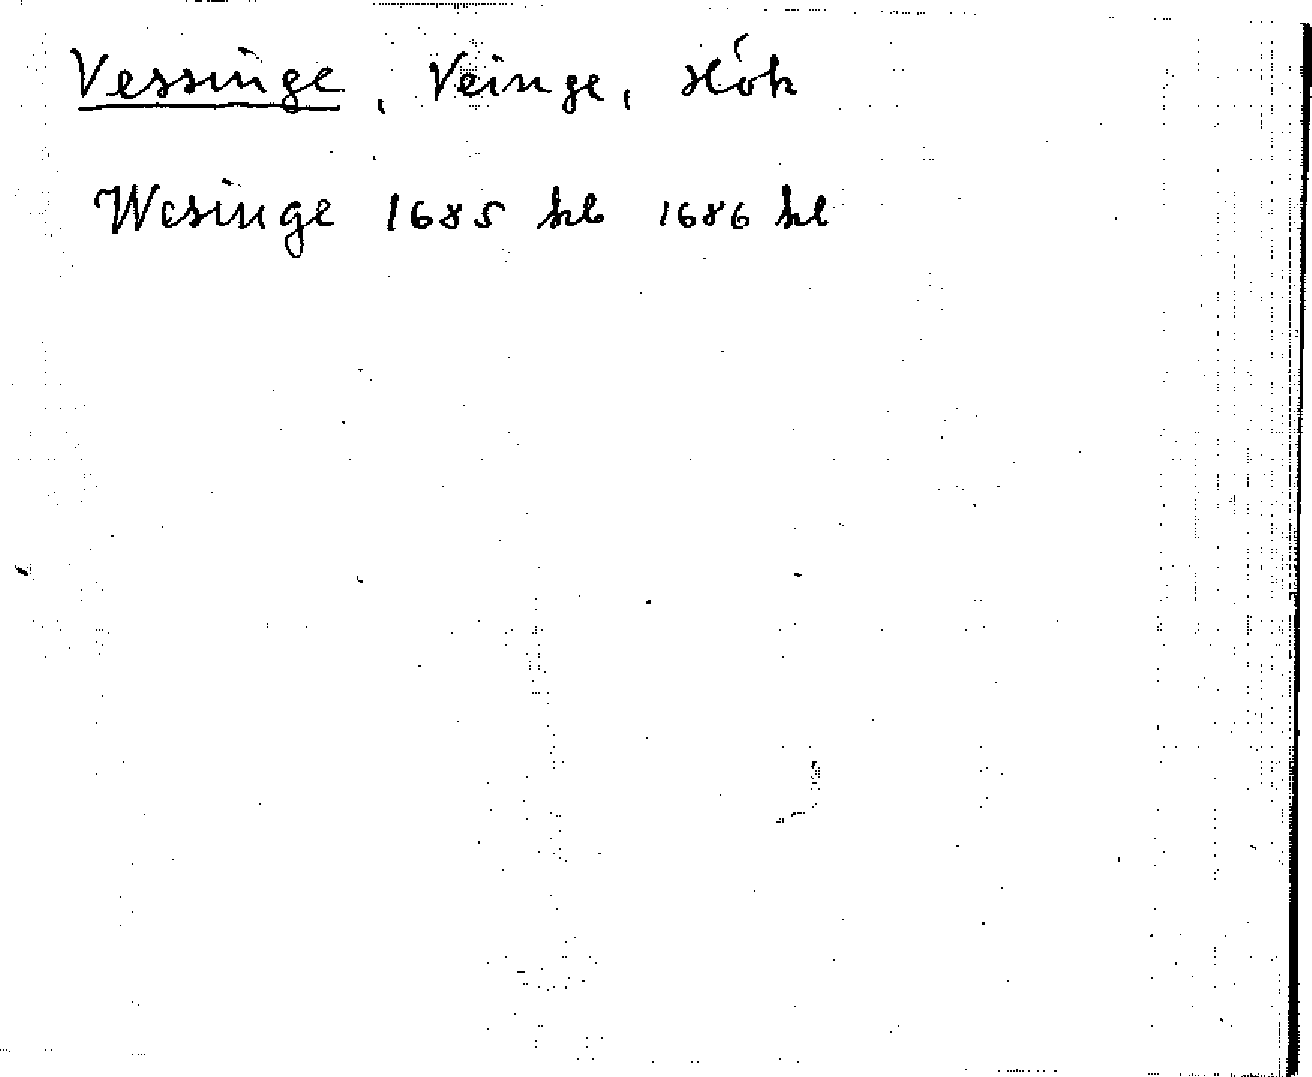 Vessinge, Veinge, Hök
Wesinge 1685 hlb 1686 hl